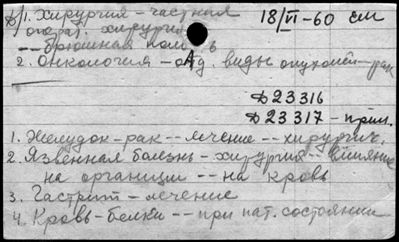 1. Хирургия – частная 18/VI – 60 см
операт. хирургия
-- брюшная полость
2. Онкология – отд. виды опухолей – рак
Д 23316
Д 23317 – прил.
1. Желудок – рак -- лечение -- хирургич.
2. Язвенная болезнь – хирургия -- влияние
на организм -- на кровь
3. Гастрит – лечение
4. Кровь – белки -- при пат. состоянии